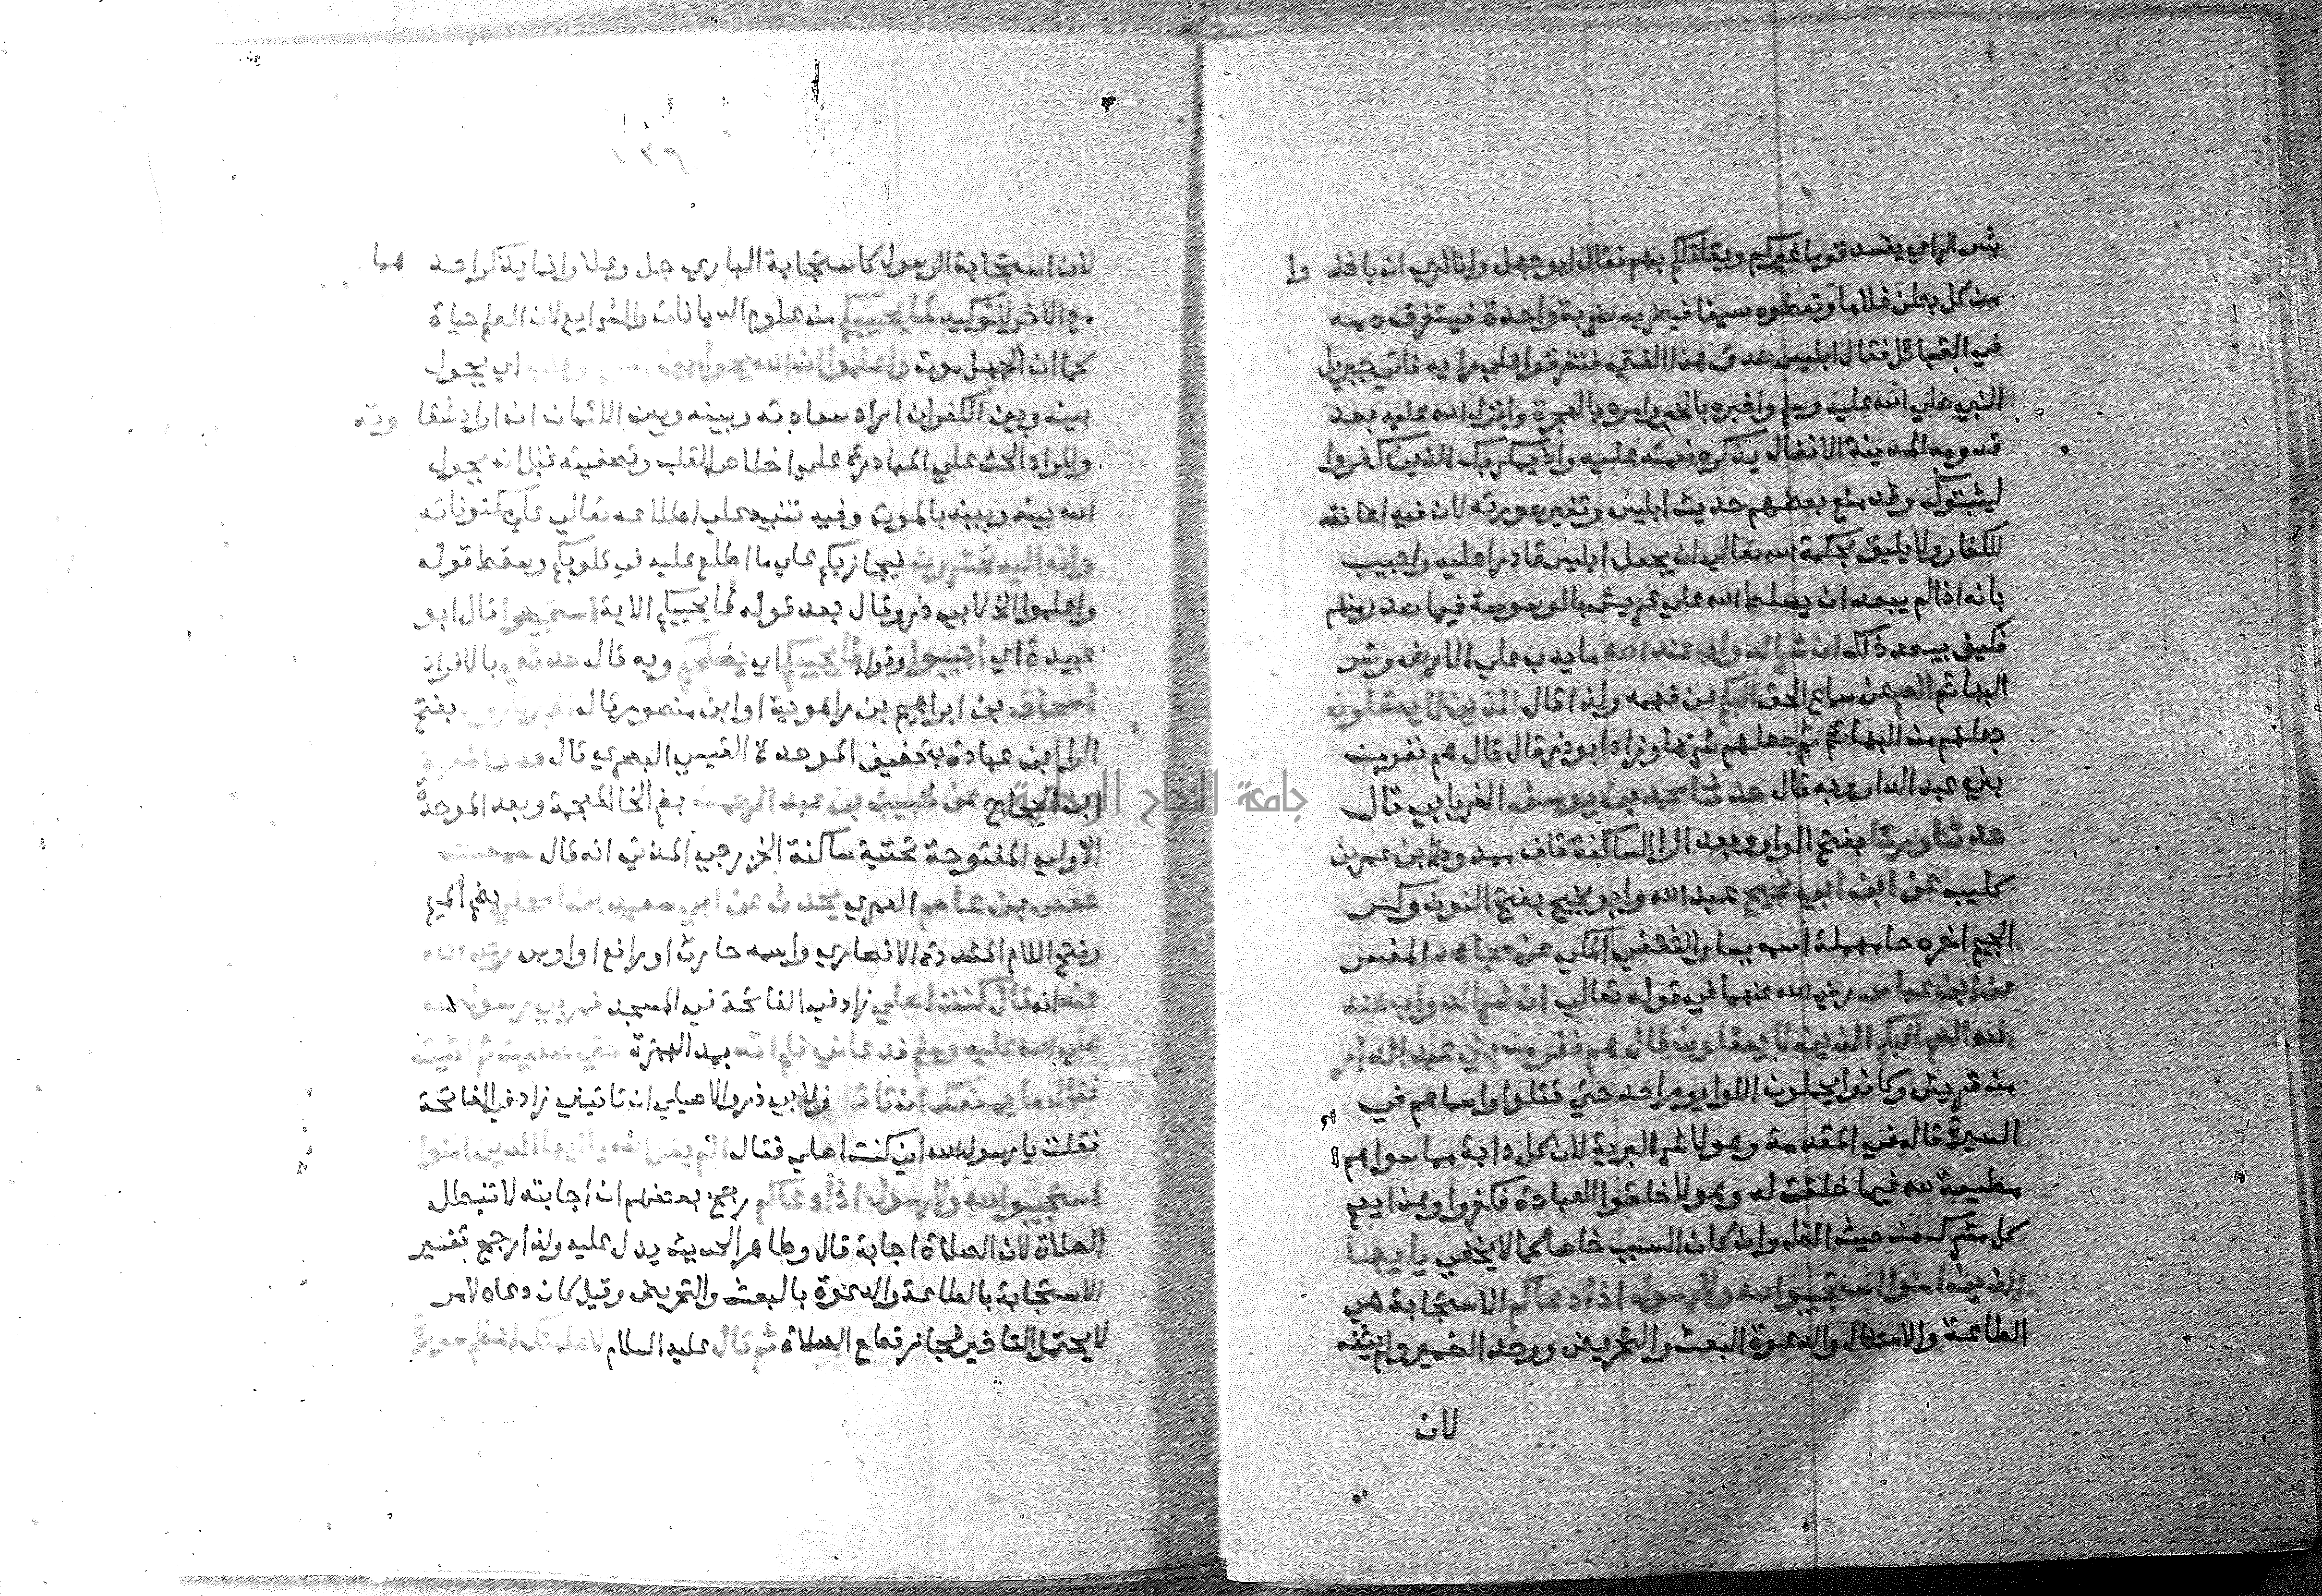 بئس الراي يفسد قوما غيركم ويقاتلكم بهم فقال ابو جهل وانا اري ان ياخذ وا
من كل بطن غلاما وتعطوه سيفا فيضربه ضربة واحدة فيتفرق دمه
في القبائل فقال ابليس صدق هذا الفتي فتفرقوا علي رايه فاتي جبريل
النبي صلي الله عليه وسلم واخبره بالخبر وامره بالهجرة وانزل الله عليه بعد
قدومه المدينة الانفال يذكره نعمته عليه واذ يمكر بك الذين كفروا
ليثبتوك وقد منع بعضهم حديث ابليس وتغير صورته لان فيه اعانة
للكفار ولا يليق بحكمة الله تعالي ان يجعل ابليس قادرا عليه واجيب
بانه اذا لم يبعد ان يسلطه الله علي قريش بالوسوسة فيما صدر منهم
فكيف يبعد ذلك ان شر الدواب عند الله ما يدب علي الارض وشر
البهائم الصم عن سماع الحق البكم عن فهمه ولذا قال الذين لا يعقلون
جعلهم من البهائم ثم جعلهم شرها وزاد ابو ذر قال قال هم نفر من
بني عبد الدار وبه قال حدثنا محمد بن يوسف الفريابي قال
حدثنا ورقا بفتح الواو وبعد الرا الساكنة قاف ممدودا ابن عمر بن
كليب عن ابن ابي نجيح عبد الله وابو نجيح بفتح النون وكسر
الجيم اخره حا مهملة اسمه يسار الثقفي المكي عن مجاهد المفسر
عن ابن عباس رضي الله عنهما في قوله تعالي ان شر الدواب عند
الله الصم البكم الذين لا يعقلون قال هم نفر من بني عبد الدار
من قريش وكانوا يحملون اللوا يوم احد حتي قتلوا واسماهم في
السيرة قاله في المقدمة وهولا شر البرية لان كل دابة مما سواهم
مطيعة لله فيما خلقت له وهولا خلقوا للعبادة فكفروا وهذا يعم
كل مشرك من حيث اللفظ وان كان السبب خاصا كما لا يخفي يا ايها
الذين امنوا استجيبوا لله وللرسول اذا دعاكم الاستجابة هي
الطاعة والامتثال والدعوة البعث والتحريض ووحد الضمير ولم يثنه
لان
١٣٦
لان استجابة الرسول كاستجابة الباري جل وعلا وانما يذكر احد هما
مع الاخر للتوكيد لما يحييكم من علوم الديانات والشرايع لان العلم حياة
كما ان الجهل موت واعلموا ان الله يحول بين اي يحول
بينه وبين الكفر ان اراد سعادته وبينه وبين الايمان ان اراد شقا وته
والمراد الحث علي المبادرة علي اخلاص القلب وتصفيته قبل ان يحول
الله بينه وبينه بالموت وفيه تنبيه علي اطلاعه تعالي علي مكنوناته
وانه اليه تحشرون فيجازيكم علي ما اطلع عليه في قلوبكم وسقط قوله
واعلموا الخ لابي ذر وقال بعد قوله لما يحييكم الاية استجيبوا قال ابو
عبيدة اي اجيبوا وقوله لما يحييكم اي يصلحكم وبه قال حدثني بالافراد
اسحاق بن ابراهيم بن راهوية او ابن منصور قال بفتح
الرا ابن عبادة بتخفيف الموحدة القيسي البصري قال حدثنا شعبة
ابن الحجاج عن خبيب بن عبد الرحمن بضم الخا المعجمة وبعد الموحدة
الاولي المفتوحة تحتية ساكنة الخزرجي المدني انه قال سمعت
حفص بن عاصم العمري يحدث عن ابي سعيد بن المعلي بضم الميم
وفتح اللام المشددة الانصاري واسمه حارث او رافع او اوس رضي الله
عنه انه قال كنت اصلي زاد في الفاتحة في المسجد فمر بي رسول الله
صلي الله عليه وسلم فدعاني فلم اته بمد الهمزة حتي صليت ثم اتيته
فقال ما يمنعك ان تاتي ولابي ذر والاصيلي ان تاتيني زاد في الفاتحة
فقلت يا رسول الله اني كنت اصلي فقال الم يقل الله يا ايها الذين امنوا
استجيبوا لله وللرسول اذا دعاكم رجح بعضهم ان اجابته لا تبطل
الصلاة لان الصلاة اجابة قال وظاهر الحديث يدل عليه ولذا رجح تفسير
الاستجابة بالطاعة والدعوة بالبعث والتحريض وقيل كان دعاه لامر
لا يحتمل التاخير فجاز قطع الصلاة ثم قال عليه السلام